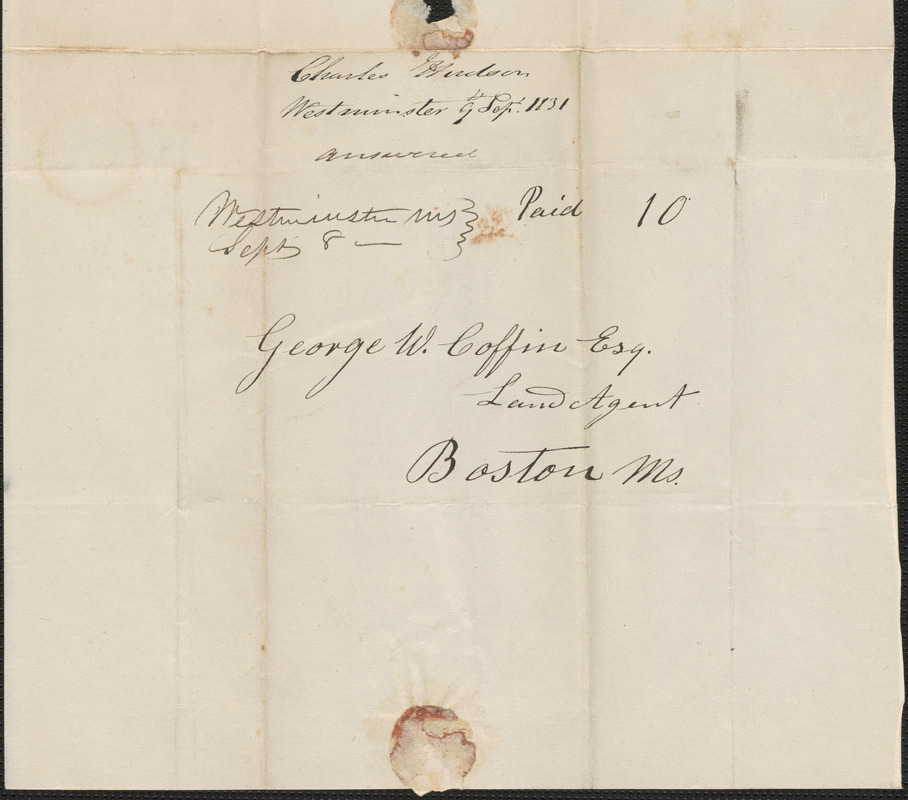 Charles Hudson
Westminster 9th Sept. 1831
answered
Westminster Ms } Paid 10
Sept 8 —
George W. Coffin Esq.
Land Agent
Boston Ms.